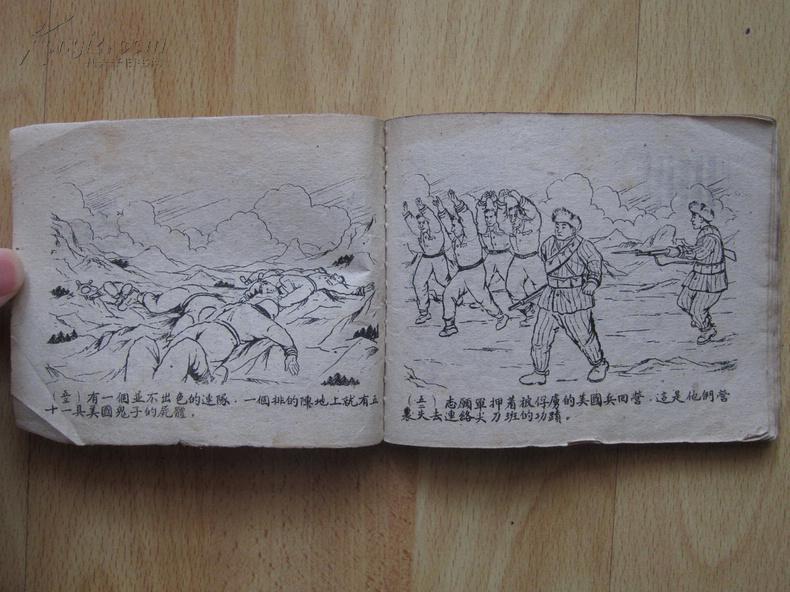 (五〇) 有一個並不出色的連隊．一個排的陣地上就有五
十一具美國鬼子的屍體．
(五一) 志願軍押着被俘虜的美國兵回營．這是他們營
裏失去連絡尖刀班的功蹟。